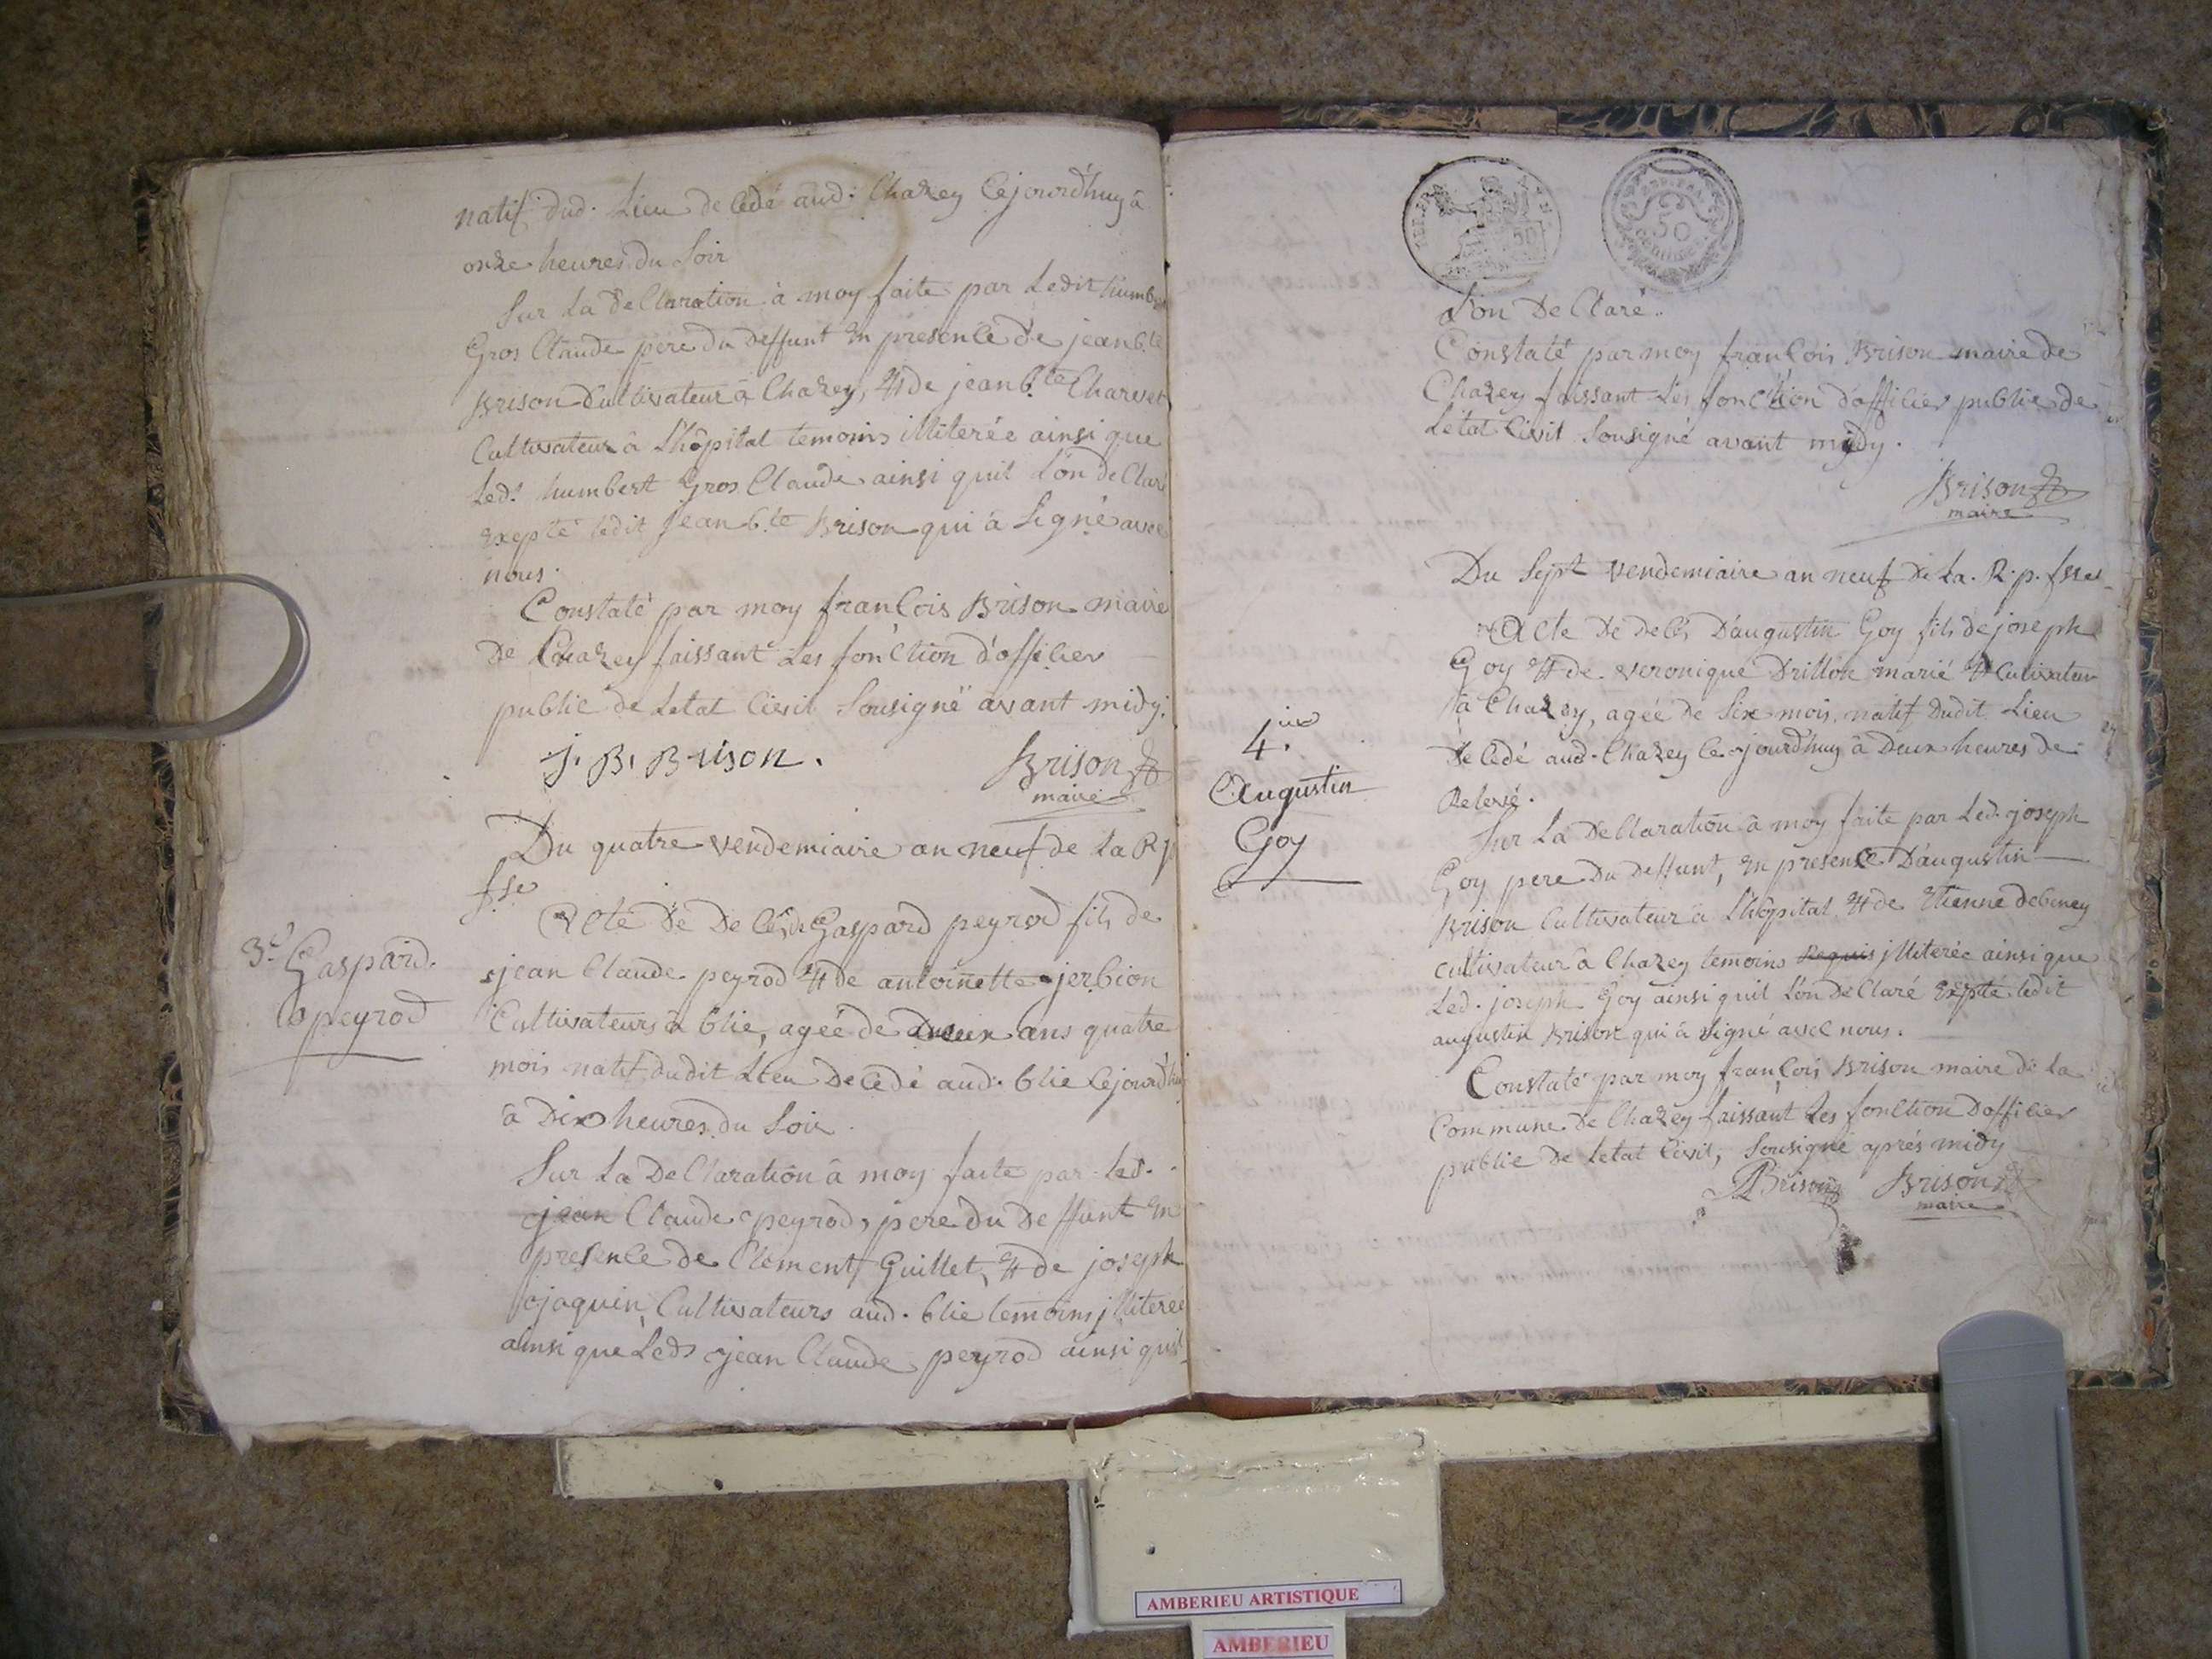 natif dud. Lieu decedé aud. Chazey Cejourd'huy à
onze heures du Soir
Sur La declaration à moy faite par Ledit humbert
Gros Claude pere du deffunt En presence de jean b.te
Brison Cultivateur à Chazey, & de jean b.te Charvet
Cultivateur à L'hopital temoins illiterée ainsi que
Led.t humbert Gros Claude ainsi quil L'on declaré
Exepté ledit jean b.te Brison qui à Signé avec
nous.
Constaté par moy francois Brison maire
de Chazey faissant Les fonction d'officier
public de Letat Civil Sousigné avant midy.
j. B. Brison.
Brison
maire
Du quatre vendemiaire an neuf de La R p
f.se
3.e Gaspard.
peyrod
Acte de deces de Gaspard peyrod fils de
jean Claude peyrod & de antoinette jerbion
Cultivateurs à blie, ageé de deux ans quatre
mois natif dudit Lieu decedé aud. blie Cejourd'huy
à Dix heures du Soir.
Sur La declaration à moy faite par Led.
jean Claude peyrod, pere du deffunt En
presence de Clement Guillet, & de joseph
jaquin, Cultivateurs aud. blie temoins jlliterée
ainsi que Led. jean Claude peyrod ainsi quil
50
50
L'on declaré.
Constaté par moy francois Brison maire de
Chazey faissant Les fonction d'officier public de
Letat Civil Sousigné avant midy.
Brison
maire
Du Sept vendemiaire an neuf de La. R. p. fsse
4.
Augustin
Goy
Acte de deces D'augustin Goy fils de joseph
Goy & de veronique Drillon marié & Cultivateur
à Chazey, ageé de Six mois, natif dudit Lieu
decedé aud. Chazey Cejourd'huy à Deux heures de
Relevé.
Sur La declaration à moy faite par Led. joseph
Goy pere du deffunt, En presence D'augustin
Brison Cultivateur à L'hopital & de Etienne debeney
cultivateur à Chazey temoins Requis jlliterée ainsi que
Led. joseph Goy ainsi quil L'on declaré Expté ledit
augustin Brison qui à signé avec nous.
Constaté par moy francois Brison maire de La
Commune de Chazey faissant Les fonction D'officier
public de Letat Civil, Sousigné aprés midy
Brison
Brison
maire
AMBERIEU ARTISTIQUE
AMBERIEU